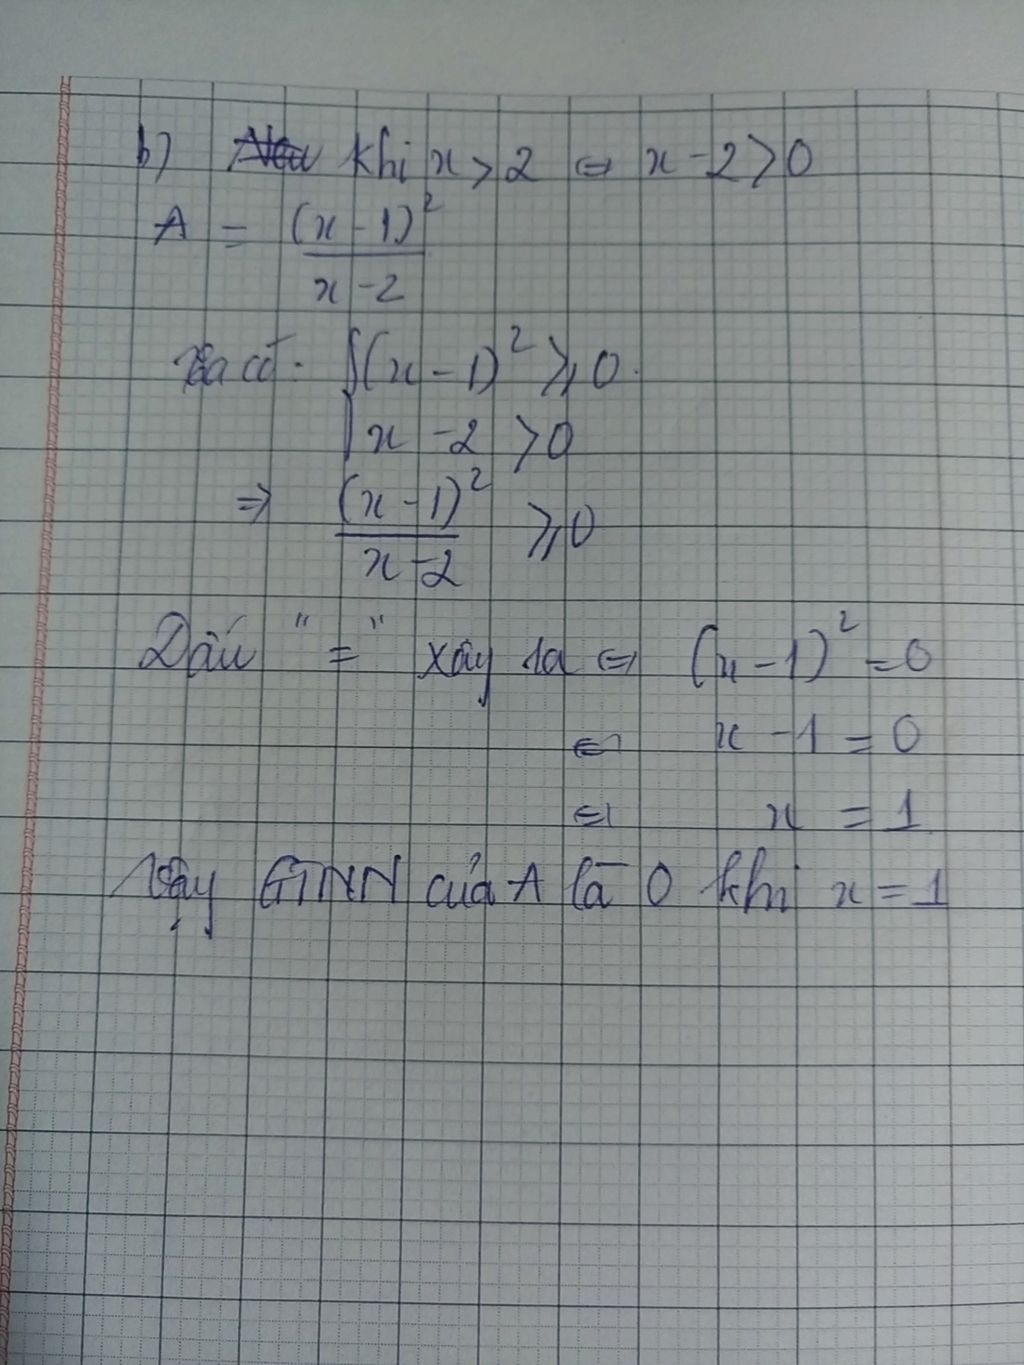 b) khi x > 2 ⇔ x - 2 > 0
A = (x - 1)² / x - 2
Ta có: { (x - 1)² ⩾ 0.
x - 2 > 0
⇒ (x - 1)² / x - 2 ⩾ 0
Dấu "=" xảy ra ⇔ (x - 1)² = 0
⇔ x - 1 = 0
⇔ x = 1
Vậy GTNN của A là 0 khi x = 1